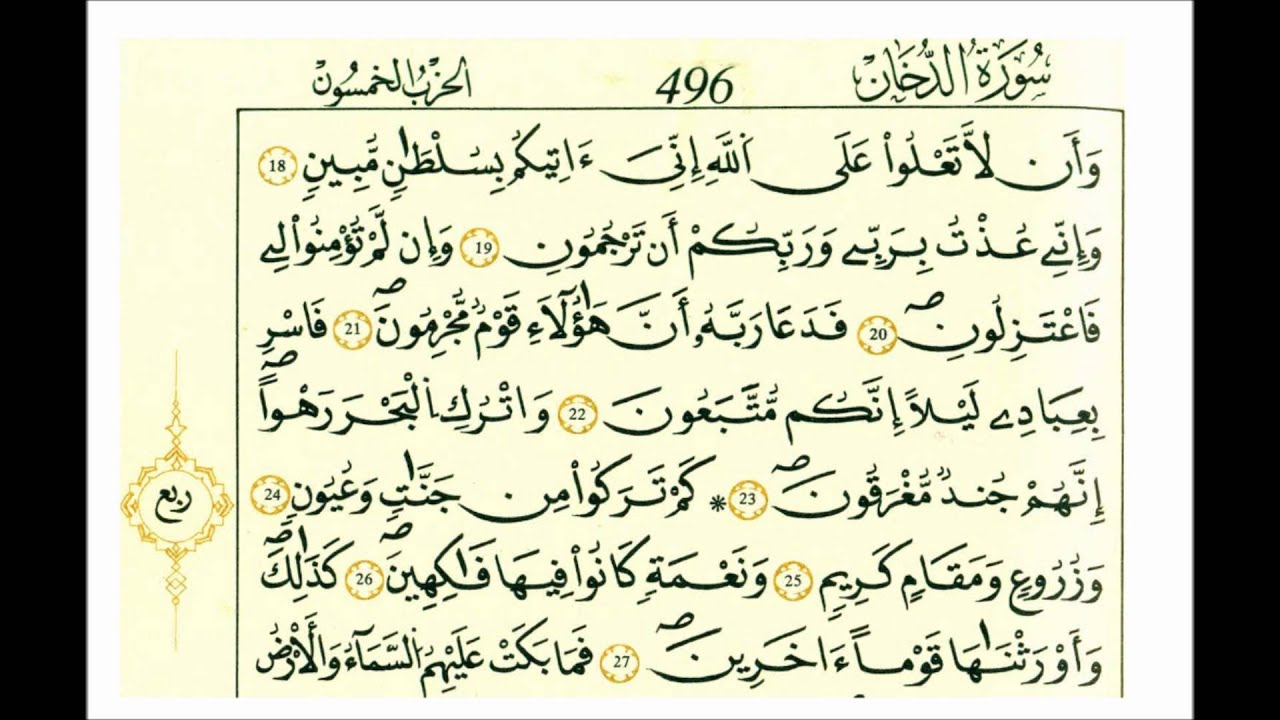 سُورَةُ الدُّخَانِ 496 الحِزْبُ الخَمْسُون
وَأَن لَّا تَعْلُواْ عَلَى اَ۬للَّهِ إِنِّىَ ءَاتِيكُم بِسُلْطَٰنٖ مُّبِينٖ 18
وَإِنِّے عُذْتُ بِرَبِّے وَرَبِّكُمْ أَن تَرْجُمُونِ 19 وَإِن لَّمْ تُؤْمِنُواْ لِے
فَاعْتَزِلُونِۖ 20 فَدَعَا رَبَّهُۥٓ أَنَّ هَٰٓؤُلَآءِ قَوْمٞ مُّجْرِمُونَۖ 21 فَاسْرِ
بِعِبَادِے لَيْلاً إِنَّكُم مُّتَّبَعُونَ 22 وَاتْرُكِ اِ۬لْبَحْرَ رَهْواًۖ
إِنَّهُمْ جُندٞ مُّغْرَقُونَۖ 23 * كَمْ تَرَكُواْ مِن جَنَّٰتٖ وَعُيُونٖ 24
وَزُرُوعٖ وَمَقَامٖ كَرِيمٖ 25 وَنَعْمَةٖ كَانُواْ فِيهَا فَٰكِهِينَۖ 26 كَذَٰلِكَۖ
وَأَوْرَثْنَٰهَا قَوْماً ءَاخَرِينَۖ 27 فَمَا بَكَتْ عَلَيْهِمُ اُ۬لسَّمَآءُ وَالْأَرْضُ
ربع